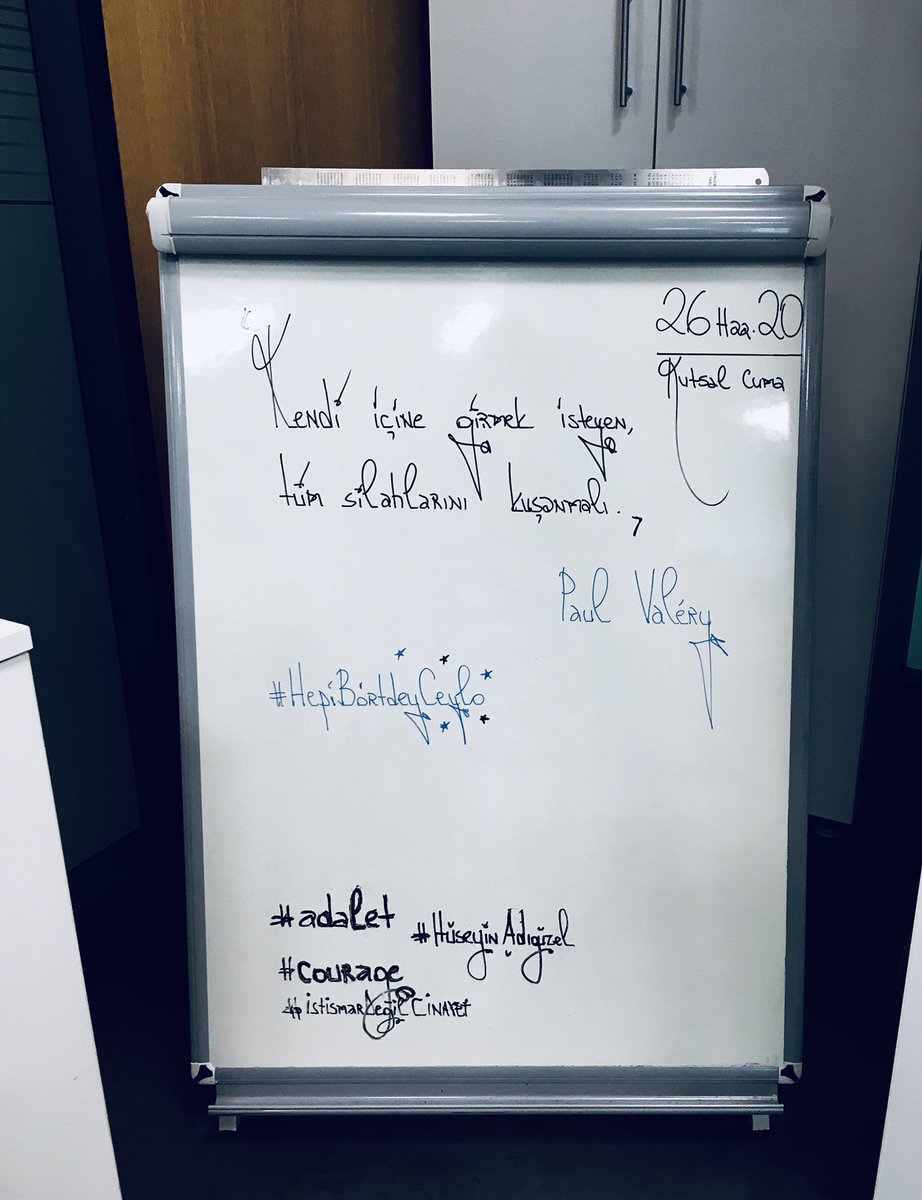 26 Haz. 20
Kutsal Cuma
Kendi içine girmek isteyen,
tüm silahlarını kuşanmalı.,
Paul Valéry
#HepiBörtdeyCeylo
#adalet #HüseyinAdıgüzel
#courage
#istismarDeğilCinayet